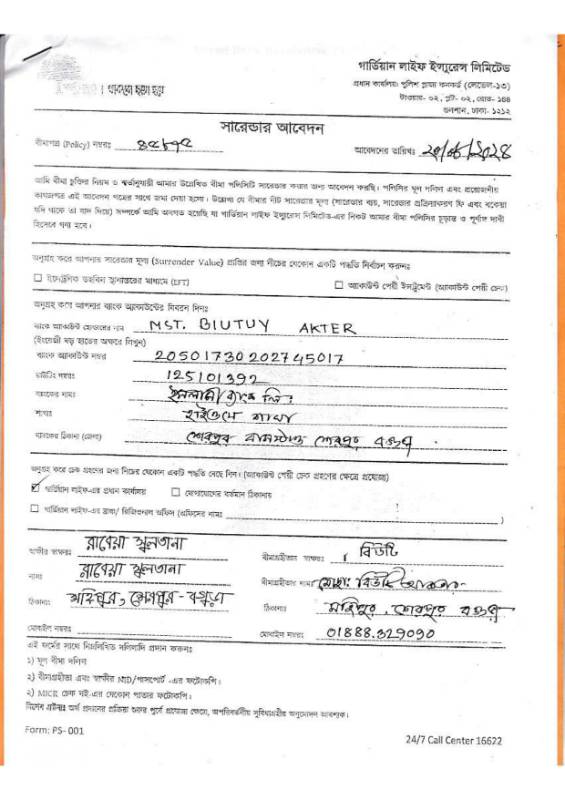 গার্ডিয়ান লাইফ ইন্স্যুরেন্স লিমিটেড
প্রধান কার্যালয়: পুলিশ প্লাজা কনকর্ড (লেভেল-১৩)
টাওয়ার- ০২, প্লট- ০২, রোড- ১৪৪
গুলশান, ঢাকা- ১২১২
সারেন্ডার আবেদন
বীমাপত্র (Policy) নম্বরঃ
আবেদনের তারিখঃ ২০২৪
আমি বীমা চুক্তির নিয়ম ও শর্তানুযায়ী আমার উল্লেখিত বীমা পলিসিটি সারেন্ডার করার জন্য আবেদন করছি। পলিসির মূল দলিল এবং প্রয়োজনীয়
কাগজপত্র এই আবেদন পত্রের সাথে জমা দেয়া হলো। উল্লেখ্য যে বীমার নীট সারেন্ডার মূল্য (সারেন্ডার ব্যয়, সারেন্ডার প্রক্রিয়াকরণ ফি এবং বকেয়া
যদি থাকে তা বাদ দিয়ে) সম্পর্কে আমি অবগত হয়েছি যা গার্ডিয়ান লাইফ ইন্স্যুরেন্স লিমিটেড-এর নিকট আমার বীমা পলিসির চূড়ান্ত ও পূর্ণাঙ্গ দাবী
হিসেবে গন্য হবে।
অনুগ্রহ করে আপনার সারেন্ডার মূল্য (Surrender Value) প্রাপ্তির জন্য নীচের যেকোন একটি পদ্ধতি নির্বাচন করুনঃ
ইলেক্ট্রনিক তহবিল স্থানান্তরের মাধ্যমে (EFT)
অ্যাকাউন্ট পেয়ী ইন্সট্রুমেন্ট (অ্যাকাউন্ট পেয়ী চেক)
অনুগ্রহ করে আপনার ব্যাংক অ্যাকাউন্টের বিবরণ দিনঃ
ব্যাংক অ্যাকাউন্ট হোল্ডারের নাম MST. BIUTUY AKTER
(ইংরেজী বড় হাতের অক্ষরে লিখুন)
ব্যাংক অ্যাকাউন্ট নম্বর 20501730202745017
রাউটিং নম্বরঃ 125101392
ব্যাংকের নামঃ ইসলামী ব্যাংক লিঃ
শাখাঃ শাখা
ব্যাংকের ঠিকানা (জেলা) শেরপুর বাসস্ট্যান্ড শেরপুর বগুড়া
অনুগ্রহ করে চেক গ্রহণের জন্য নিচের যেকোন একটি পদ্ধতি বেছে নিন। (অ্যাকাউন্ট পেয়ী চেক গ্রহণের ক্ষেত্রে প্রযোজ্য)
গার্ডিয়ান লাইফ-এর প্রধান কার্যালয়
যোগাযোগের বর্তমান ঠিকানায়
গার্ডিয়ান লাইফ-এর ব্রাঞ্চ/ রিজিওনাল অফিস (অফিসের নামঃ )
স্বাক্ষীর স্বাক্ষরঃ রাবেয়া সুলতানা
বীমাগ্রহীতার স্বাক্ষরঃ বিউটি
নামঃ রাবেয়া সুলতানা
বীমাগ্রহীতার নামঃ মোছাঃ বিউটি আকতার
ঠিকানাঃ মহিপুর, শেরপুর - বগুড়া
ঠিকানাঃ মহিপুর, শেরপুর বগুড়া
মোবাইল নম্বরঃ
মোবাইল নম্বরঃ 01888.329090
এই ফর্মের সাথে নিম্নলিখিত দলিলাদি প্রদান করুনঃ
১) মূল বীমা দলিল
২) বীমাগ্রহীতা এবং স্বাক্ষীর NID/পাসপোর্ট -এর ফটোকপি।
২) MICR চেক বই-এর যেকোন পাতার ফটোকপি।
বিশেষ দ্রষ্টব্যঃ অর্থ প্রদানের প্রক্রিয়া শুরুর পূর্বে প্রযোজ্য ক্ষেত্রে, অপরিবর্তনীয় সুবিধাগ্রহীর অনুমোদন আবশ্যক।
Form: PS- 001
24/7 Call Center 16622